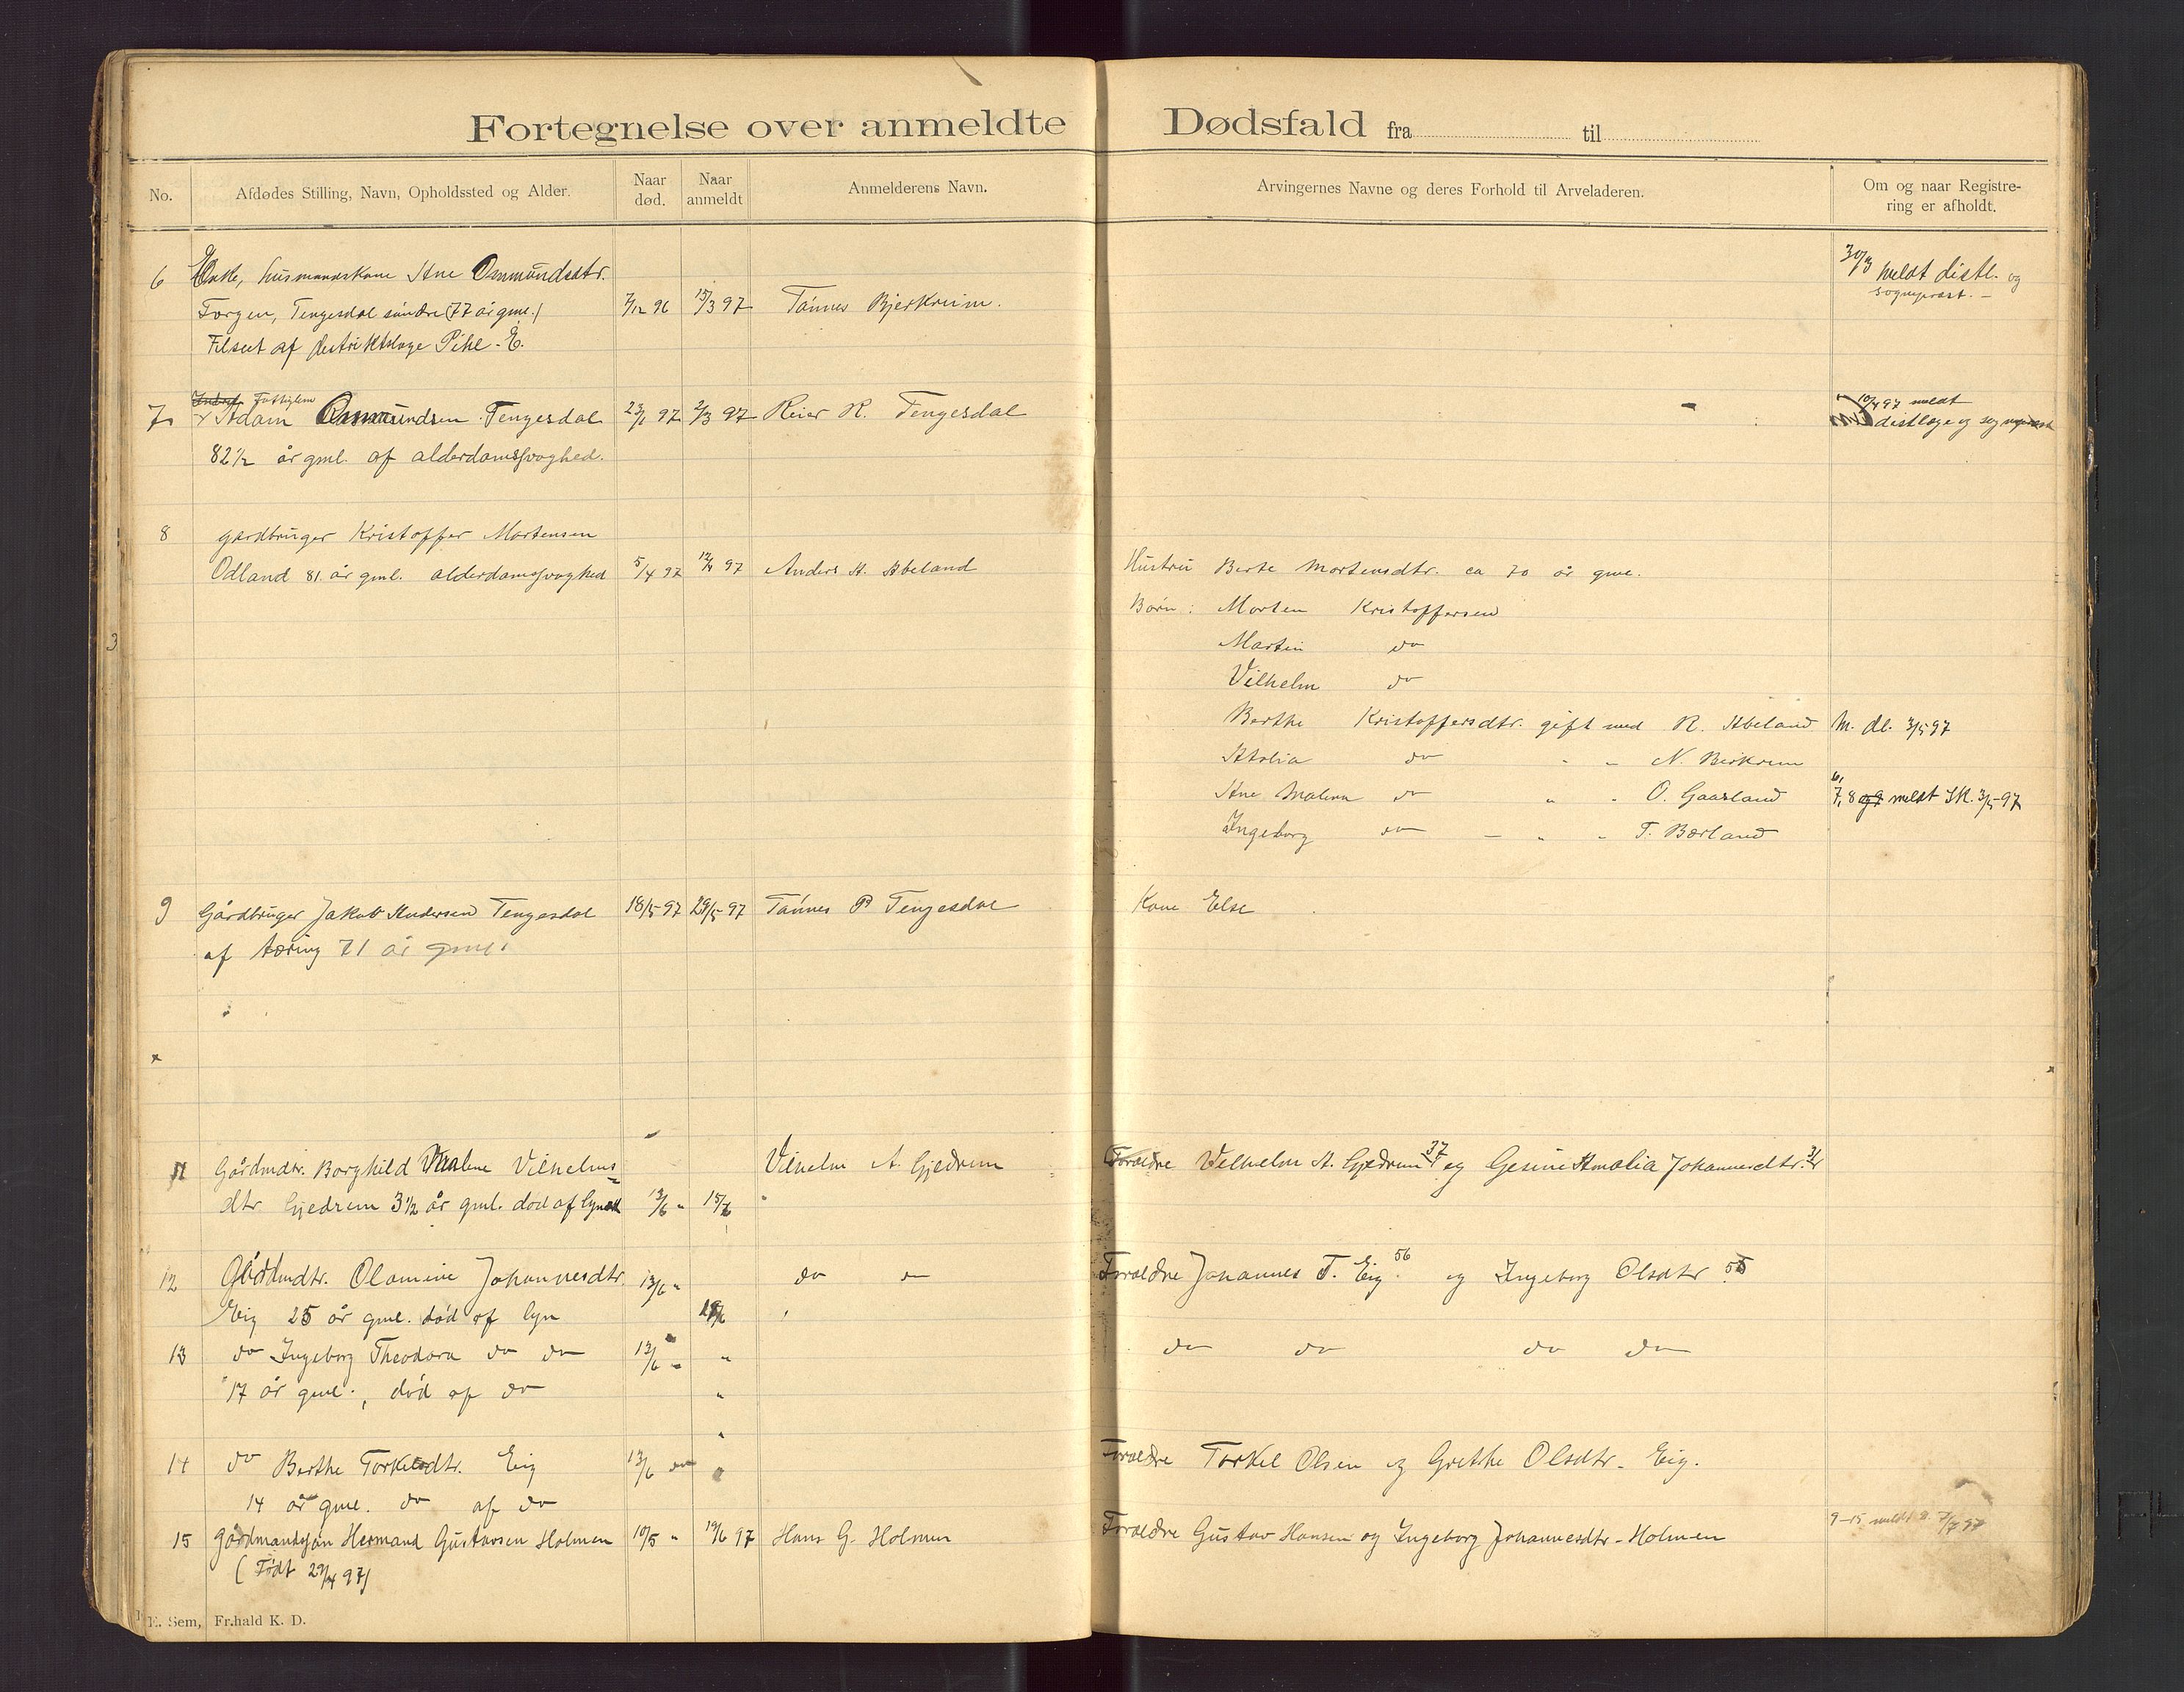 Fortegnelse over anmeldte Dødsfald fra til
No.
Afdødes Stilling, Navn, Opholdssted og Alder.
Naar død.
Naar anmeldt
Anmelderens Navn.
Arvingernes Navne og deres Forhold til Arveladeren.
Om og naar Registrering er afholdt.
6 Enke, husmandskone Ane Ommundsdtr.
Torgen, Tengesdal søndre (77 år gml.) 7/12 96 15/3 97 Tønnes Bjerkreim.
Tilseet af distriktslæge Pihl - E.
30/3 meldt distl. og
sogneprest. -
7 Adam Osmundsen Tengesdal 23/1 97 2/3 97 Reier R. Tengesdal
82 1/2 år gml. af alderdomssvaghed.
10/4 97 meldt
distlæge og sogneprest
8 gardbruger Kristoffer Mortensen
Odland 81 år gml. alderdomssvaghed 5/4 97 12/4 97 Anders A. Abeland
Hustru Berte Mortensdtr. ca 70 år gml.
Børn: Morten Kristoffersen
Martin do
Vilhelm do
Berthe Kristoffersdtr. gift med R. Abeland M. dl. 3/5 97
Atalia do " - N. Birkrem
Ane Malena do " " O. Gaasland 6, 7, 8 og 9 meldt Sk. 3/5-97
Ingeborg do - " " T. Børland
9 Gårdbruger Jakob Andersen Tengesdal 18/5 97 29/5-97 Tønnes P Tengesdal Kone Else
af tæring 71 år gml.
11 Gårdmdtr. Borghild Malene Vilhelms= Vilhelm A. Gjedrem Forældre Vilhelm A. Gjedrem 37 og Gesine Amalia Johannesdtr. 31
dtr Gjedrem 3 1/2 år gml. død af lynet 13/6 " 15/6
12 Gårdmdtr. Olamine Johannesdtr. 13/6 " do do Forældre Johannes T. Eig 56 og Ingeborg Olsdtr 55
Eig 25 år gml. død af lyn
13 do Ingeborg Theodora do do 13/6 " " do do do do
17 år gml., død af do "
14 do Berthe Torkelsdtr. Eig 13/6 Forældre Torkel Olsen og Grethe Olsdtr. Eig.
14 år gml. do af do
15 gårdmandssøn Hermand Gustavsen Holmen 10/5 " 19/6 97 Hans G. Holmen Forældre Gustav Hansen og Ingeborg Johannesdtr - Holmen 9-15 meldt 7/7 97
(Født 29/4 97)
E. Sem, Fr.hald K. D.